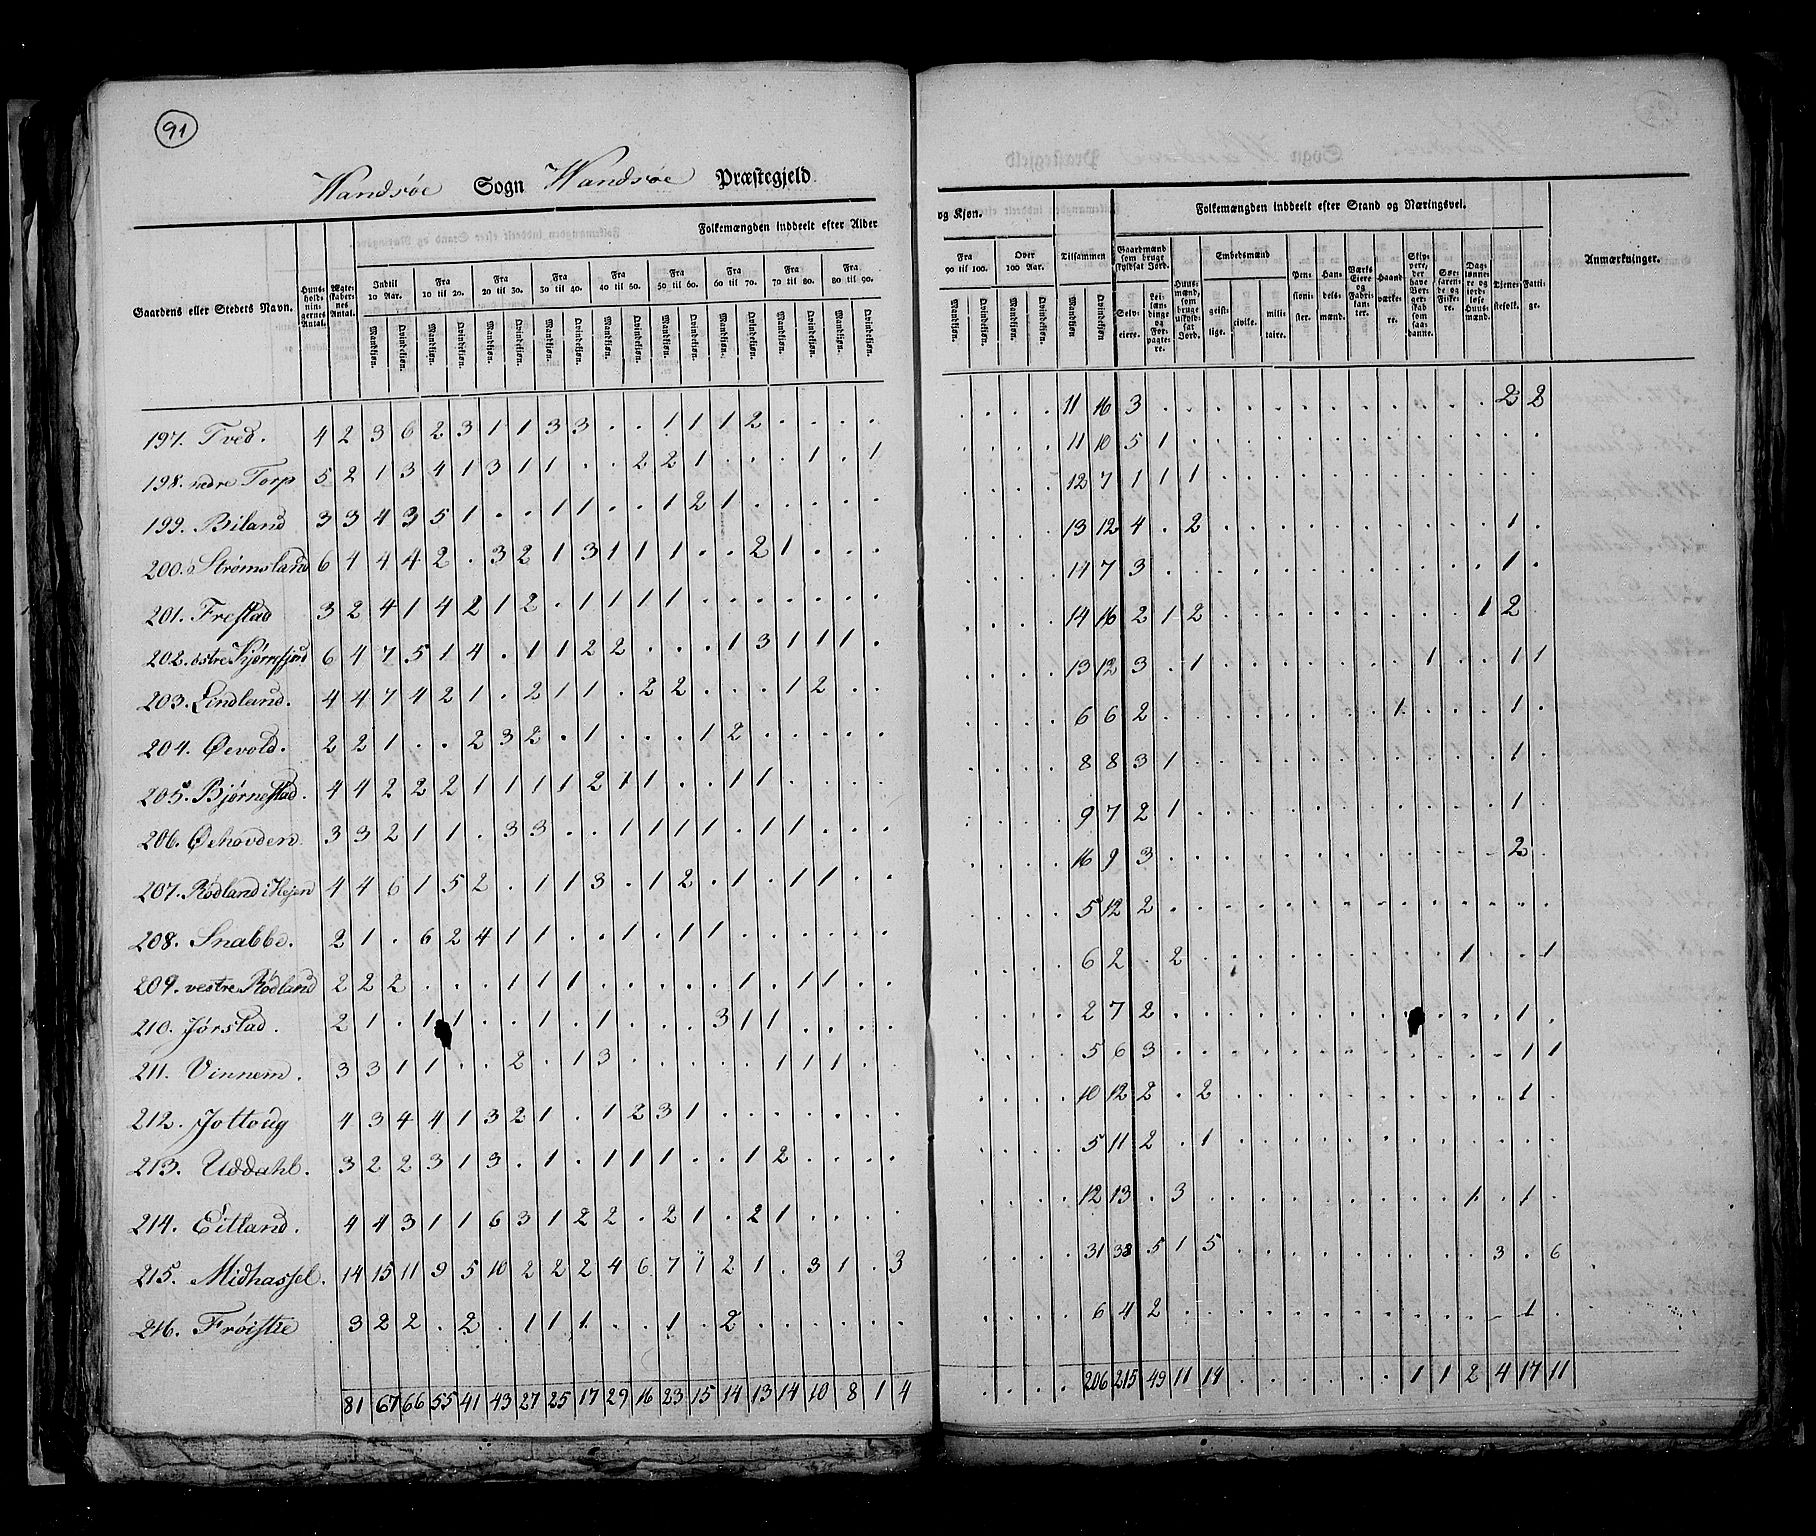 91
Wandsøe Sogn Wandsøe Præstegjeld
Folkemængden inddeelt efter Alder og Kjøn. Tilsammen Folkemængden inddeelt efter Stand og Næringsvei. Anmærkninger.
Gaardens eller Steders Navn. Huusholdningernes Antal. Ægteskabernes Antal.
Indtil 10 Aar. Fra 10 til 20. Fra 20 til 30. Fra 30 til 40. Fra 40 til 50. Fra 50 til 60. Fra 60 til 70. Fra 70 til 80. Fra 80 til 90. Fra 90 til 100. Over 100 Aar.
Mandkjøn. Qvindekjøn.
Gaardmænd som bruge skyldsat Jord. Selveiere. Leilændinge og Forpagtere. Huusmænd, som bruge uskyldsat Jord. Embedsmænd geistlige. civile. militaire. Pensionister. Handelsmænd. Værks Eiere og Fabrikanter. Haandværkere. Skippere, der have Borgerskab som saadanne. Søefarende og Fiskere. Dagslønnere og jordløse Huusmænd. Tjenestefolk. Fattige.
197. Tved. 4 2 3 6 2 3 1 1 3 3 . . 1 1 1 2 . . . . . . . . 11 16 3 . . . . . . . . . . . . 2 2
198. indre Torp 5 2 1 3 4 1 3 1 1 . . 2 2 1 . . . 1 . 1 . . . . 11 10 5 1 . . . . . . . . . . . . .
199. Biland 3 3 4 3 5 1 . . 1 1 . . 1 2 1 . . . . . . . . . 12 7 1 1 1 . . . . . . . . . . . .
200. ö Strømsland 6 4 4 4 2 . 3 2 1 3 1 1 1 . . 2 1 . . . . . . . 13 12 4 . 2 . . . . . . . . . . 1 .
201. Frestad 3 2 4 1 4 2 1 2 . 1 1 1 1 . . . . . . . . . . . 14 7 3 . . . . . . . . . . . . 1 .
202. østre Kjørrefjord 6 4 7 5 1 4 . 1 1 2 2 . . . 1 3 1 1 1 . . . . . 14 16 2 1 2 . . . . . . . . . 1 2
203. Lindland. 4 4 7 4 2 1 . 2 1 1 . 2 2 . . . 1 2 . . . . . . 13 12 3 . 1 . . . . . . . 1 . . 1 1
204. Øevold. 2 2 1 . . 2 3 2 . 1 . . . 1 2 . . . . . . . . . 6 6 2 . . . . . . . . 1 . . . 1 .
205. Bjørnestad. 4 4 2 2 2 1 1 1 1 2 1 1 . . 1 1 . . . . . . . . 8 8 3 1 . . . . . . . . . . . 1 .
206. Øehovden 3 3 2 1 1 . 3 3 . . 1 1 1 1 . 1 1 . . . . . . . 9 7 2 1 . . . . . . . . . . . 1 .
207. Rødland i Hejen 4 4 6 1 5 2 . 1 1 3 . 1 2 . 1 . 1 1 . . . . . . 16 9 3 . . . . . . . . . . . . 2 .
208. Snabbe. 2 1 . 6 2 4 1 1 . . 1 . 1 1 . . . . . . . . . . 5 12 2 . . . . . . . . . . . . . .
209. vestre Rødland 2 2 2 . . . 1 1 1 . . . . . 1 . 1 1 . . . . . . 6 2 . 2 . . . . . . . . . 1 . . 1
210. Jørstad. 2 1 . 1 1 . . 1 . 1 . . . 3 1 1 . . . . . . . . 2 7 2 . . . . . . . . . . . . 1 .
211. Vinnem. 3 3 1 1 . . 2 . 1 3 . . . . . 1 1 1 . . . . . . 5 6 3 . . . . . . . . . . . . 1 1
212. Jottoug 4 3 4 4 1 3 2 1 . 1 2 3 1 . . . . . . . . . . . 10 12 2 . 2 . . . . . . . . . . 1 .
213. Uddahl. 3 2 2 3 1 3 . 1 . 1 1 1 . . 1 2 . . . . . . . . 5 11 2 . 1 . . . . . . . . . . . .
214. Eitland. 4 4 3 1 1 6 3 1 2 2 . 2 1 . 2 1 . . . . . . . . 12 13 . 3 . . . . . . . . . 1 . 1 .
215. Midhassel. 14 15 11 9 5 10 2 2 2 4 6 7 1 2 1 . 3 1 . 3 . . . . 31 38 5 1 5 . . . . . . . . . 3 . 6
216. Frøistie 3 2 2 . 2 . 1 1 1 . . 1 . 2 . . . . . . . . . . 6 4 2 . . . . . . . . . . . . 1 .
81 67 66 55 41 43 27 25 17 29 16 23 15 14 13 14 10 8 1 4 . . . . 206 215 49 11 14 . . . . . . 1 1 2 4 17 11